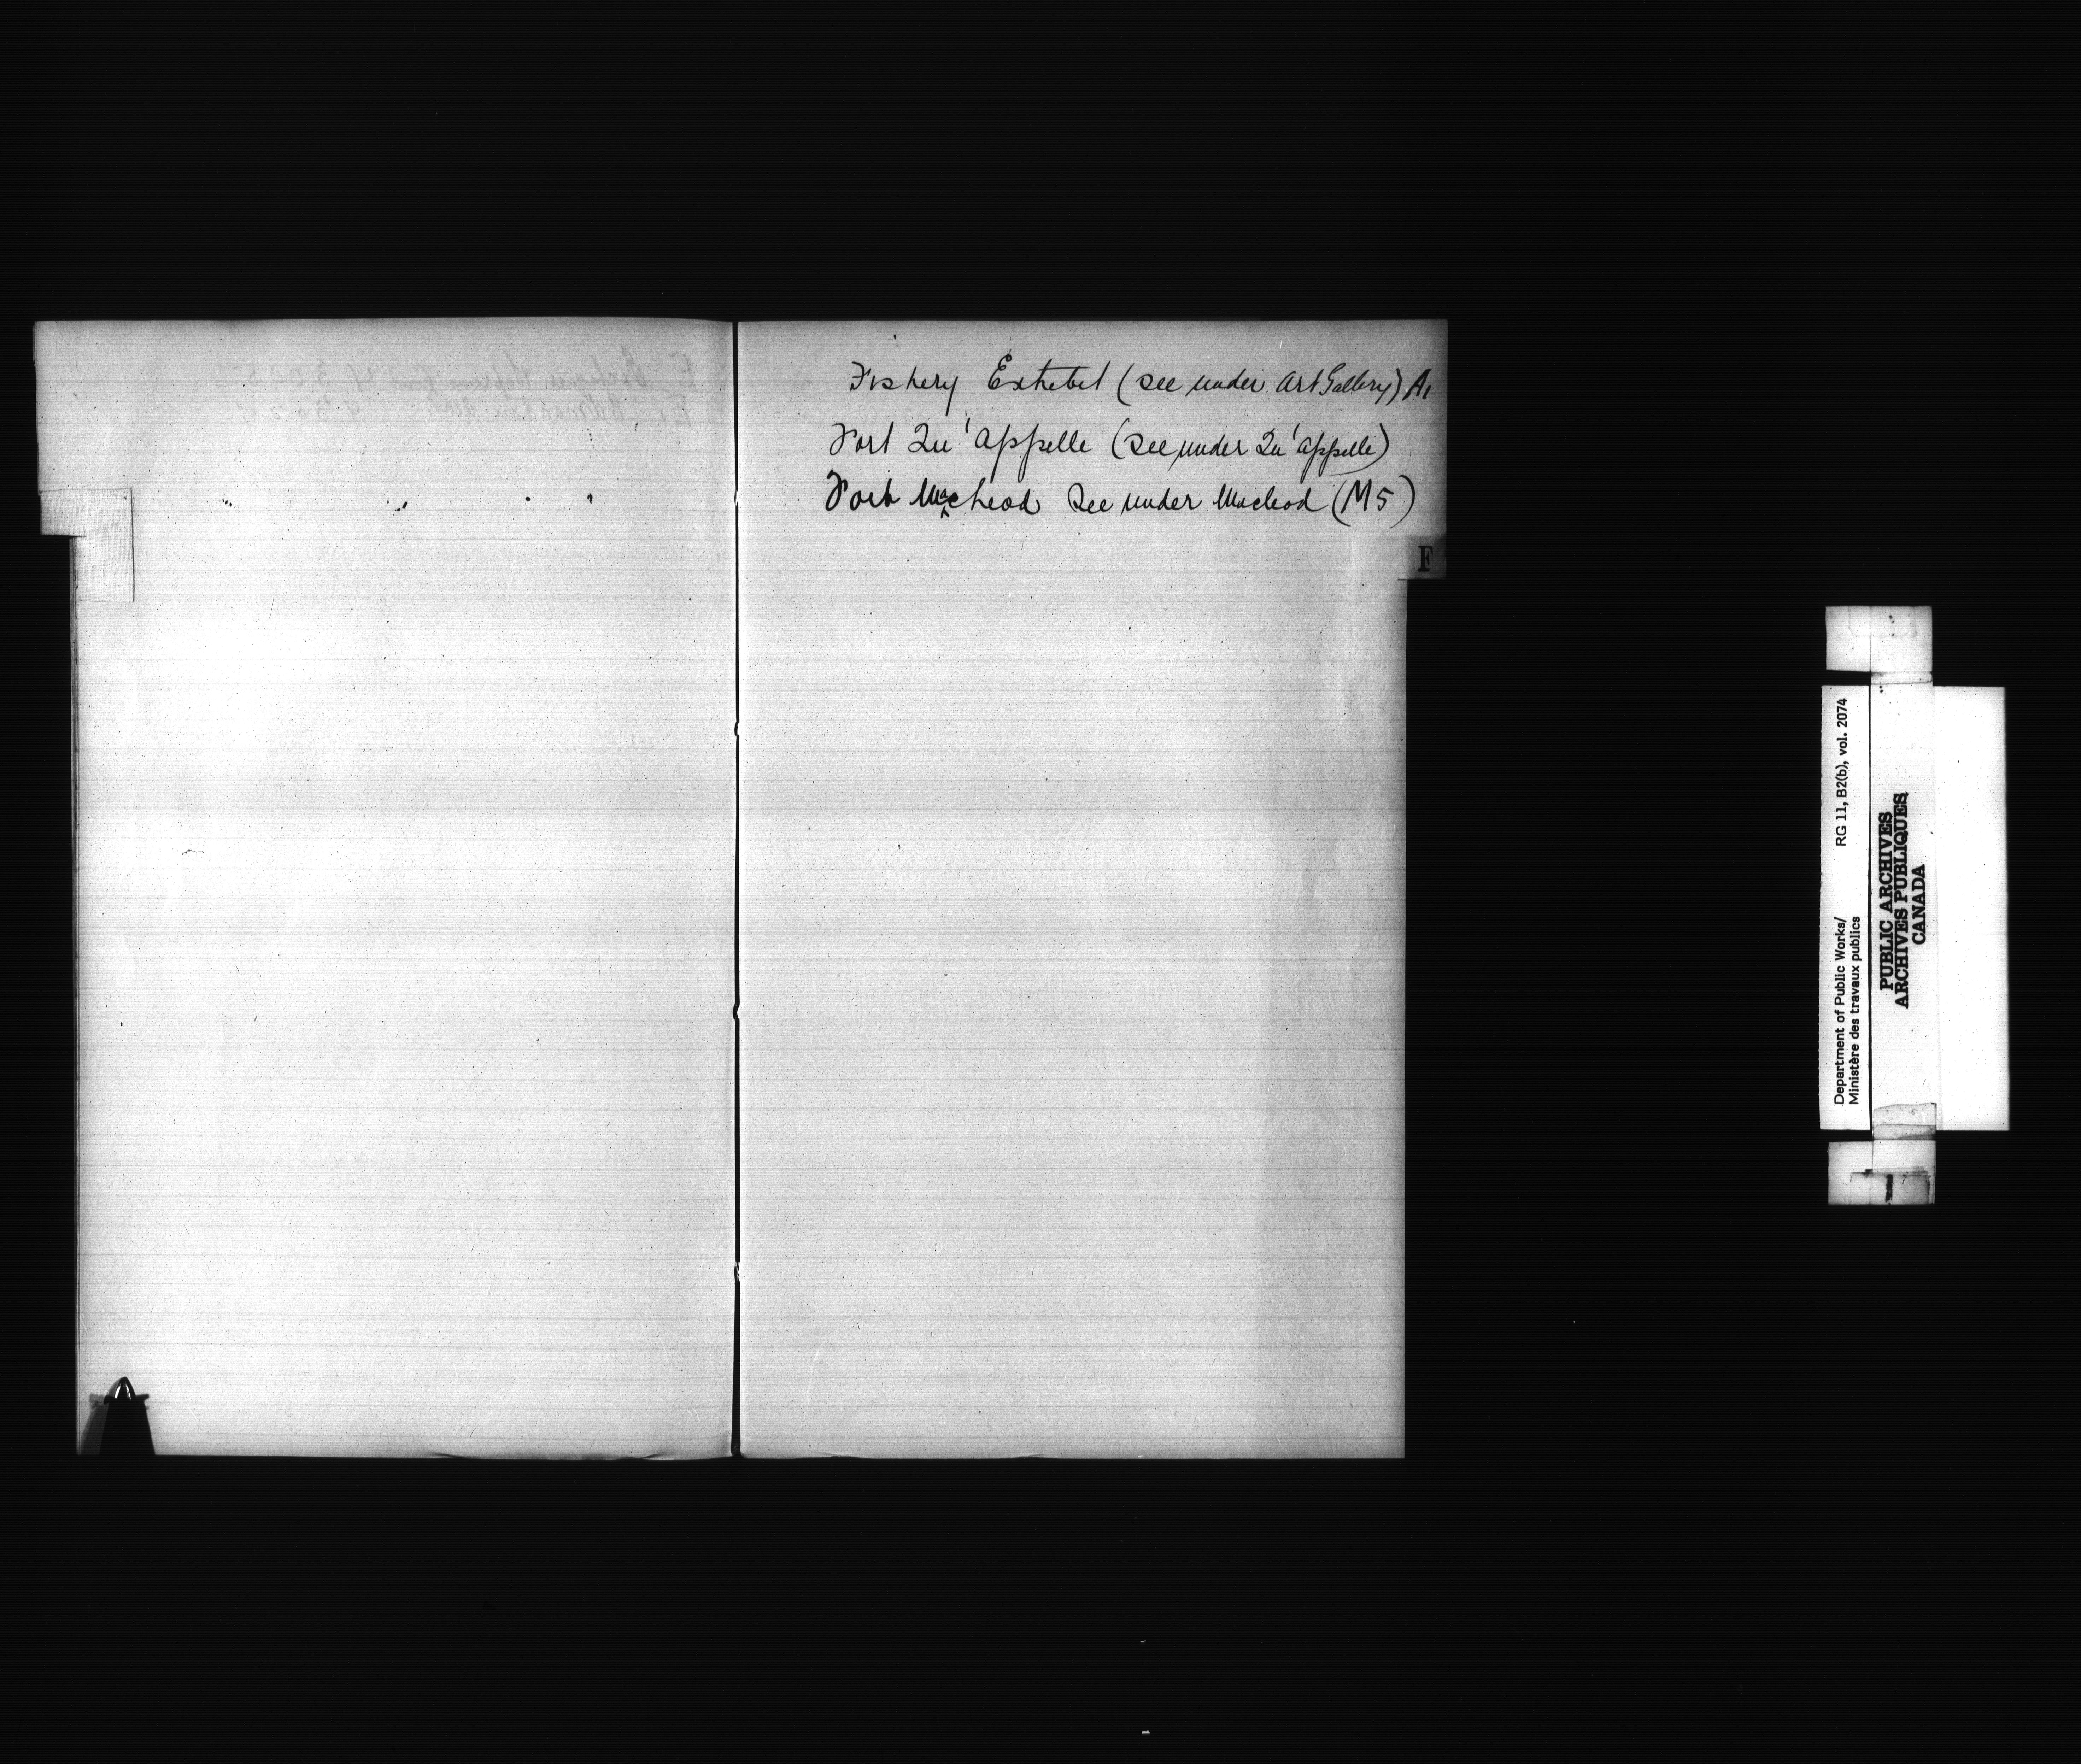 Fishery Exhibit (see under Art Gallery) A1
Fort Qu'appelle (see under Qu'appelle)
Fort MacLeod See under Macleod (M5)
F
Department of Public Works/ RG 11, B2(b), vol. 2074
Ministère des travaux publics
PUBLIC ARCHIVES
ARCHIVES PUBLIQUES
CANADA